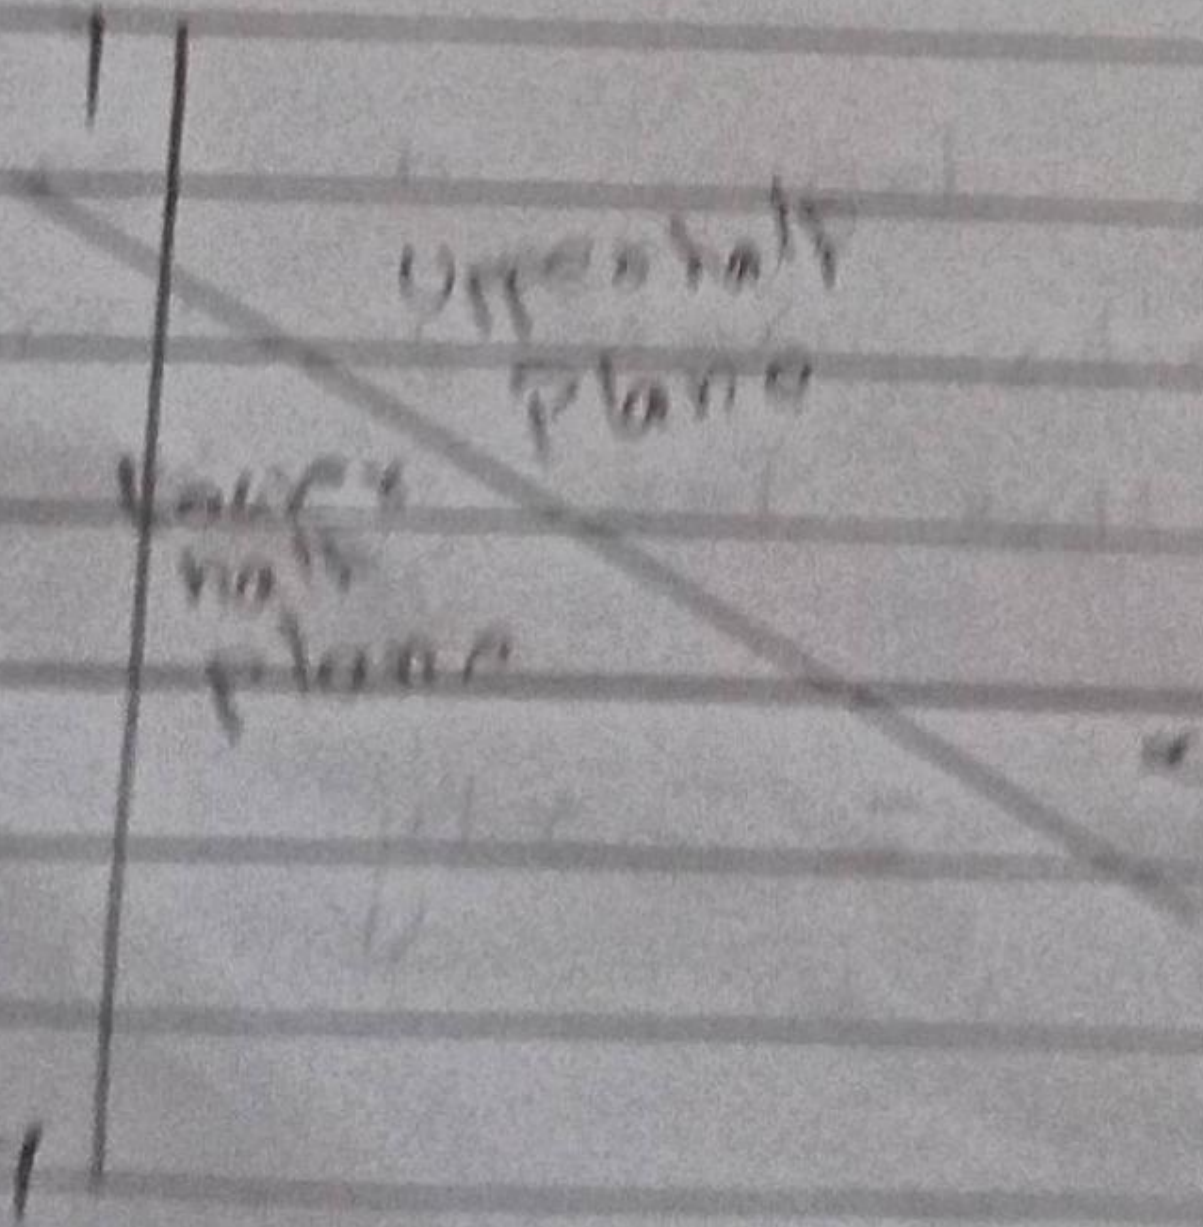 Upper half
plane
Lower
half
plane